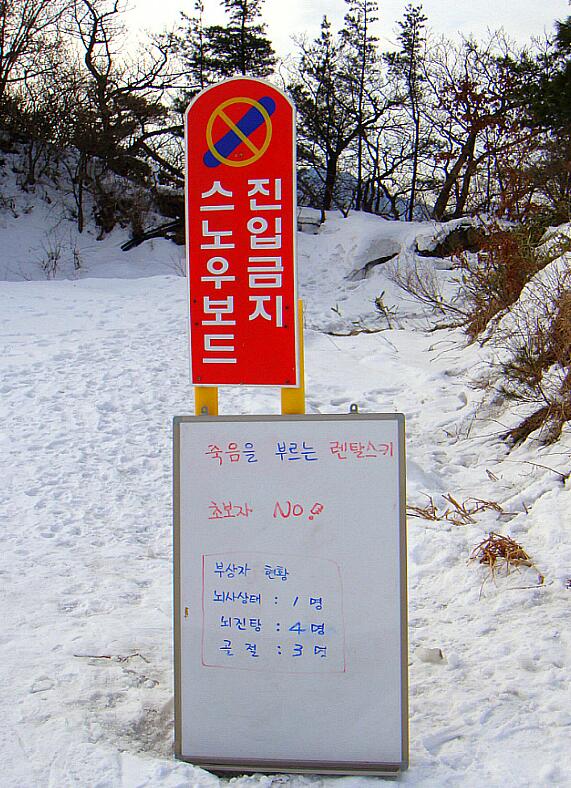 스노우보드
진입금지
죽음을 부르는 렌탈스키
초보자 NO!
부상자 현황
뇌사상태 : 1 명
뇌진탕 : 4 명
골절 : 3 명